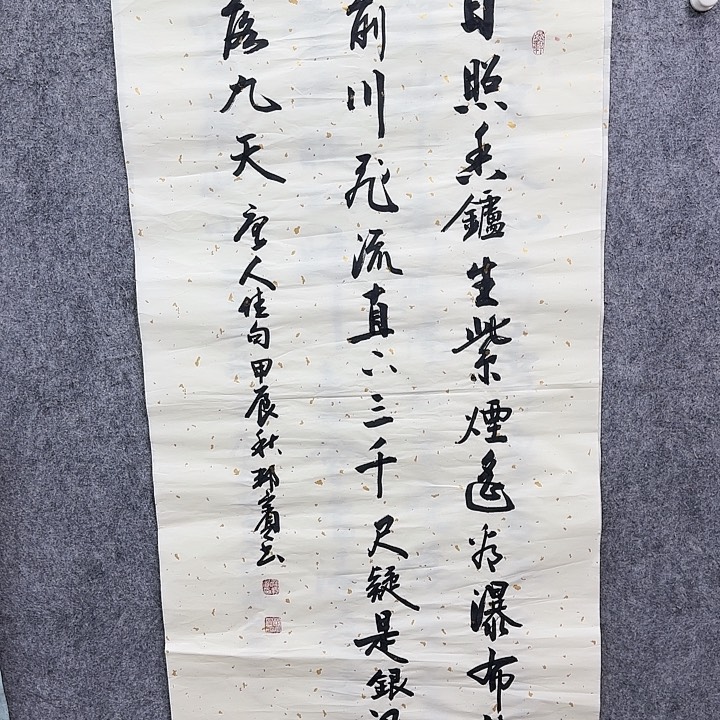 日照香鑪生紫煙遙看瀑布
前川飛流直下三千尺疑是銀
落九天 唐人佳句甲辰秋